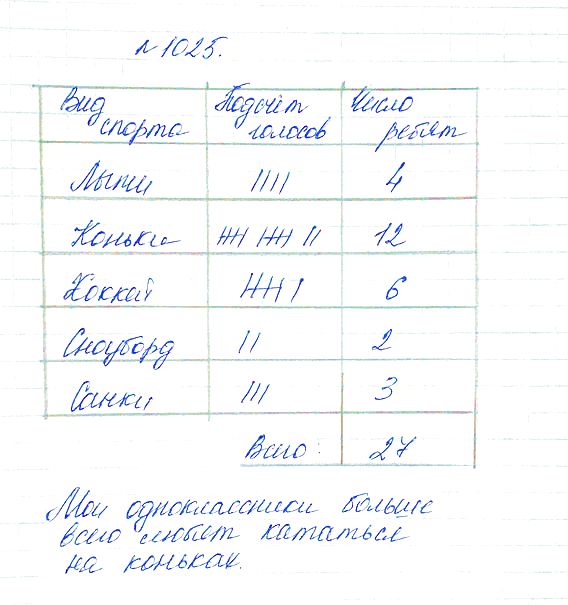 №1025.
Вид спорта Подсчёт голосов Число ребят
Лыжи |||| 4
Коньки 卌 卌 || 12
Хоккей 卌 | 6
Сноуборд || 2
Санки ||| 3
Всего: 27
Мои одноклассники больше
всего любят кататься
на коньках.